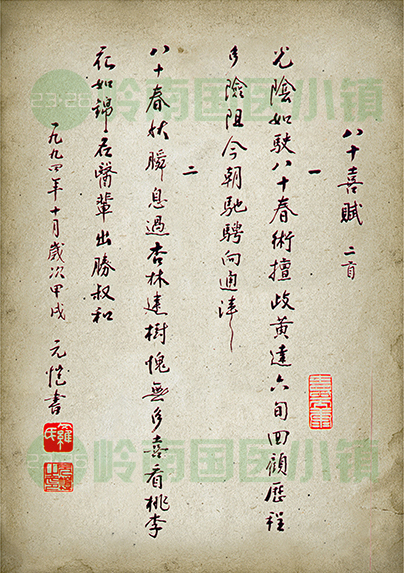 八十喜賦 二首
一
光陰如駛八十春術擅歧黃達六旬回顧歷程
多險阻今朝馳騁向通津
二
八十春秋瞬息過杏林建樹愧無多喜看桃李
花如錦后醫輩出勝叔和
一九九四年十月歲次甲戌 元愷書
23·28 岭南国医小镇
岭南国医小镇